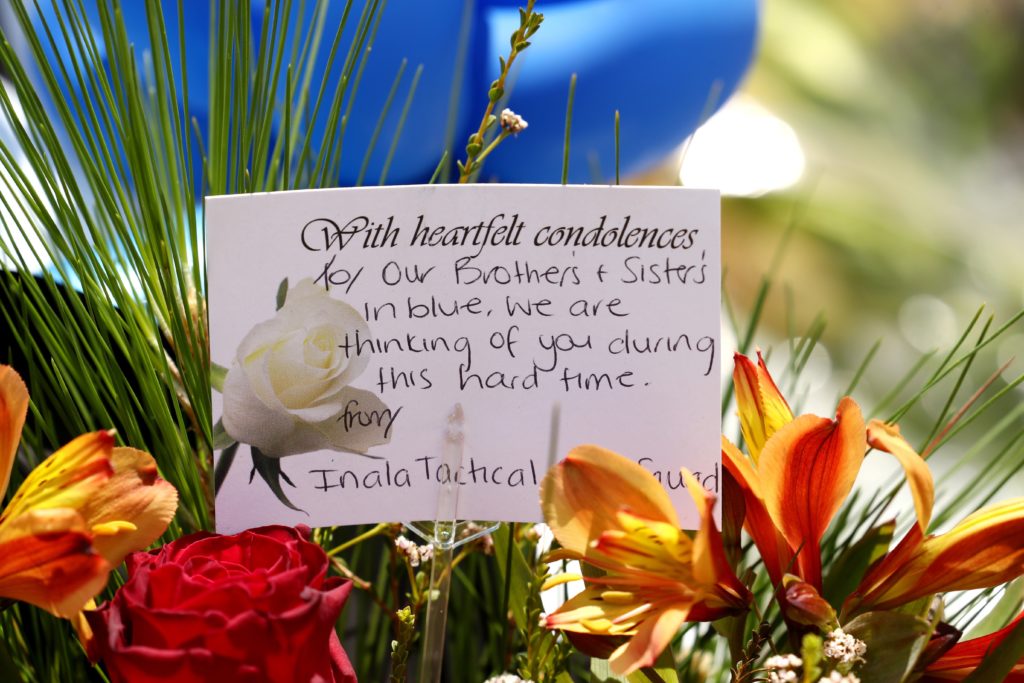 With heartfelt condolences
to/ Our Brother's + Sister's
in blue, we are
thinking of you during
this hard time.
from/
Inala Tactical